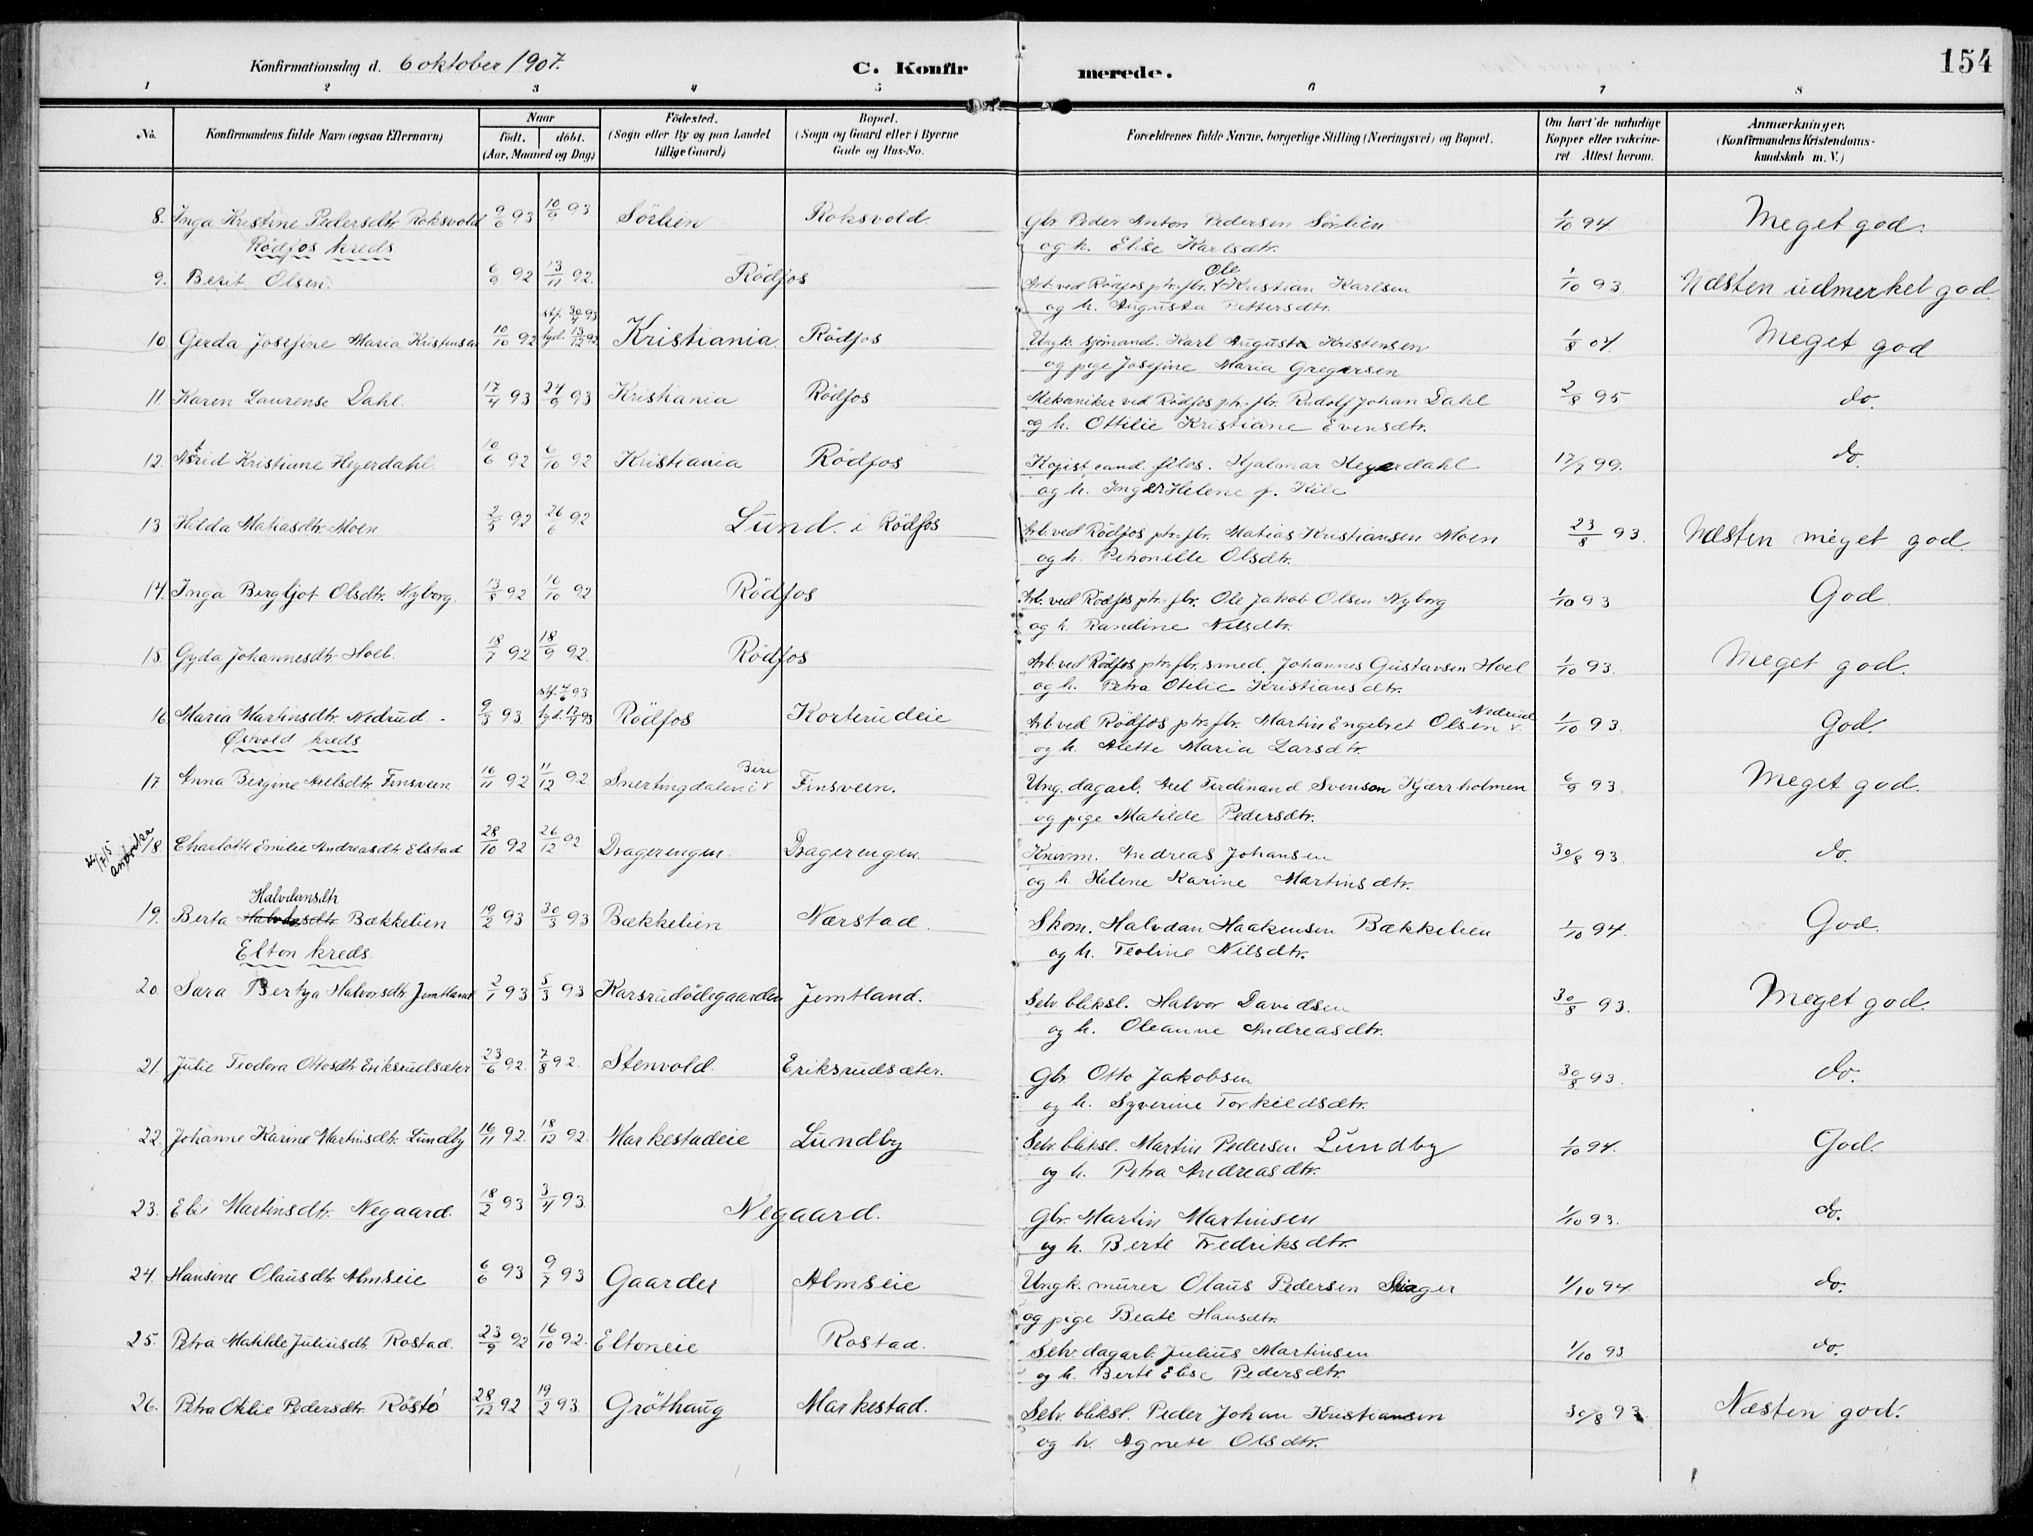 154
Konfirmationsdag d. 6 oktober 1907. C. Konfirmerede.
1 2 3 4 5 6 7 8
No. Konfirmandens fulde Navn (ogsaa Efternavn) Naar födt. döbt. (Aar, Maaned og Dag) Födested. (Sogn eller By og paa Landet tillige Gaard) Bopæl. (Sogn og Gaard eller i Byerne Gade og Hus-No. Forældrenes fulde Navne, borgerlige Stilling (Næringsvei) og Bopæl. Om havt de naturlige Kopper eller vakcineret Attest herom. Anmærkninger. (Konfirmandens Kristendomskundskab m. V.)
8. Inga Kristine Pedersdtr. Roksvold 9/6 93 10/9 93 Sörlien Roksvold. Gbr. Peder Anton Pedersen Sörlien 1/10 94 Meget god.
Rödfos kreds og h. Elise Karlsdtr.
9. Berit Olsen. 6/9 92 13/11 92. Rödfos Arb. ved Rödfos ptr. fbr. Ole Kristian Karlsen 1/10 93 Næsten udmerket god.
og h. Augusta Pettersdtr.
10. Gerda Josefine Maria Kristensen 10/10 92 stf. 30/4 93 hjd. 13/12 92 Kristiania. Rödfos Ungk. sjömand. Karl August Kristensen 1/8 07. Meget god
og pige Josefine Maria Gregersen
11. Karen Laurense Dahl. 17/4 93 24/9 93 Kristiania Rödfos Mekaniker ved Rödfos ptr. fbr. Rudolf Johan Dahl 2/8 95 do.
og h. Ottilie Kristiane Evensdtr.
12. Astrid Kristiane Heyerdahl. 10/6 92 6/10 92 Kristiania Rödfos Kopist cand. filos. Hjalmar Heyerdahl 17/7 99. do.
og h. Inger Helene f. Kile
13 Hilda Matiasdtr. Moen 2/5 92 26/6 92 Lund i Rödfos Arb. ved Rödfos ptr. fbr. Matias Kristiansen Moen 23/8 93. Næsten meget god.
og h. Petronelle Olsdtr.
14. Inga Bergljot Olsdtr. Nyborg. 13/8 92 16/10 92 Rödfos Arb. ved Rödfos ptr. fbr. Ole Jakob Olsen Nyborg 1/10 93 God
og h. Randine Nilsdtr.
15. Gyda Johannesdtr. Hoel. 18/7 92 18/9 92. Rödfos Arb. ved Rödfos ptr. fbr. smed. Johannes Gustavsen Hoel 1/10 93. Meget god.
og h. Petra Otilie Kristiansdtr.
16. Maria Martinsdtr. Nedrud. 9/3 93. stf. 4/6 93 hjd. 17/4 93 Rödfos Korterudeie Arb. ved Rödfos ptr. fbr. Martin Engebret Olsen Nedrud 1/10 93. God.
Østvold kreds og h. Alette Maria Larsdtr.
17. Anna Bergine Axelsdtr. Finsveen 16/11 92 11/12 92 Snertingdalen i Biri Finsveen. Ung. dagarb. Axel Ferdinand Svenson Kjærrholmen 6/9 93. Meget god.
og pige Matilde Pedersdtr.
18. Charlotte Emilie Andreasdtr. Elstad 28/10 92 26/12 92 Dragerengen. Dragerengen. Knivm. Andreas Johansen 30/8 93. do.
og h. Helene Karine Martinsdtr.
19. Berta Halvdansdtr Bækkelien 19/2 93 30/3 93 Bækkelien Nærstad. Skom. Halvdan Haakensen Bækkelien 1/10 94. God.
Elton kreds. og h. Teoline Nilsdtr.
20. Sara Bertya Halvorsdtr. Jemtland 2/1 93 5/3 93 Karsrudödegaarden Jemtland. Selv. bliksl. Halvor Davidsen 30/8 93. Meget god.
og h. Oleanne Andreasdtr.
21. Julie Teodora Ottosdtr. Eriksrudsæter 23/6 92. 7/8 92. Stenvold. Eriksrudsæter. Gbr. Otto Jakobsen 30/8 93. do.
og h. Syverine Torkildsdtr.
22. Johanne Karine Martinsdtr. Lundby 16/11 92. 18/12 92. Markestadeie Lundby Selv. bliksl. Martin Pedersen Lundby 1/10 94. God.
og h. Petra Andreasdtr.
23. Elie Martinsdtr. Negaard. 18/2 93 3/4 93. Negaard. Gbr. Martin Martinsen 1/10 93. do.
og h. Berte Fredriksdtr.
24. Hansine Olausdtr. Almseie 6/6 93 9/7 93 Gaarder Almseie Ungk. murer Olaus Pedersen Skiager 1/10 94. do.
og pige Beate Hansdtr.
25. Petra Matilde Juliusdtr. Rostad. 23/9 92 16/10 92. Eltoneie Rostad. Selv. dagarb. Julius Martinsen 1/10 93 do.
og h. Berte Elise Pedersdtr.
26. Petra Otilie Pedersdtr. Röstö 28/12 92 19/2 93. Gröthaug Markestad. Selv. bliksl. Peder Johan Kristiansen 30/8 93. Næsten god.
og h. Agnete Olsdtr.